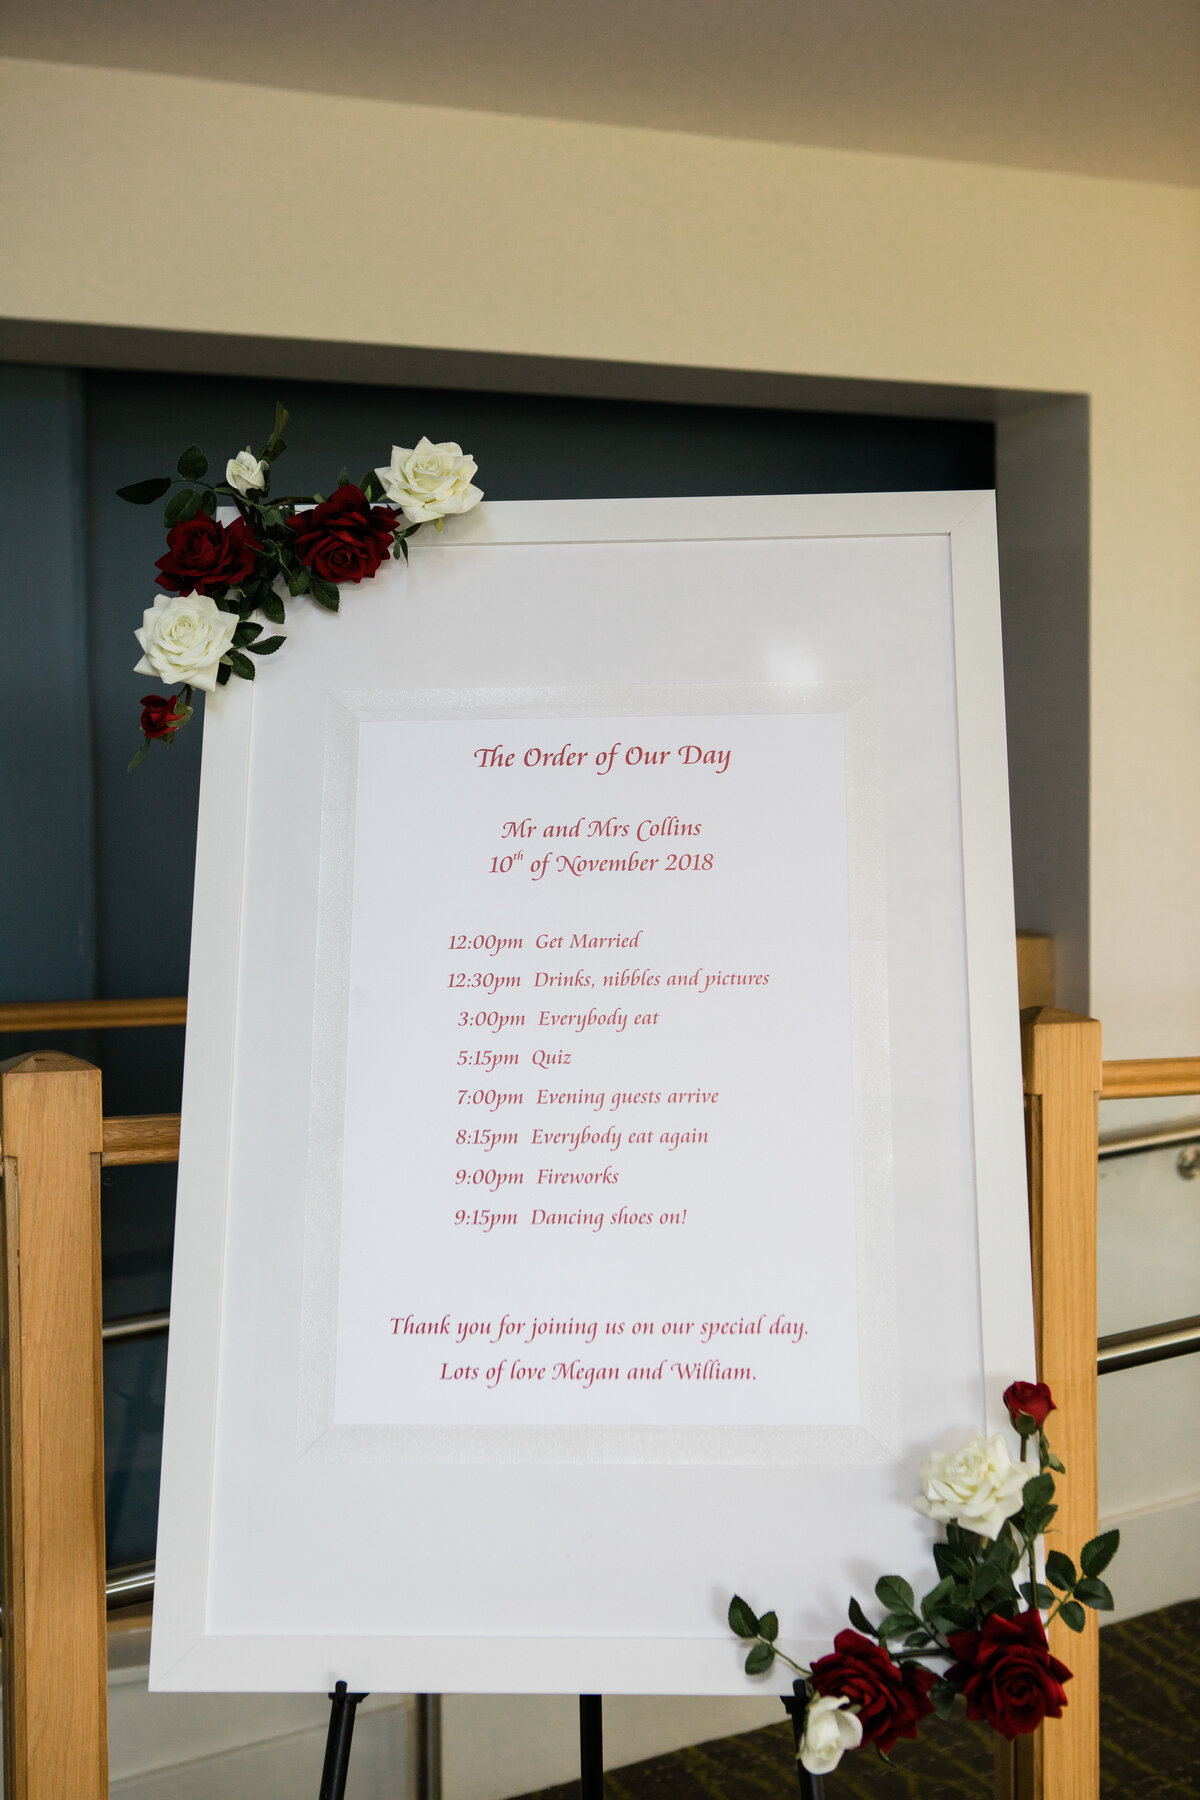 The Order of Our Day
Mr and Mrs Collins
10th of November 2018
12:00pm Get Married
12:30pm Drinks, nibbles and pictures
3:00pm Everybody eat
5:15pm Quiz
7:00pm Evening guests arrive
8:15pm Everybody eat again
9:00pm Fireworks
9:15pm Dancing shoes on!
Thank you for joining us on our special day.
Lots of love Megan and William.